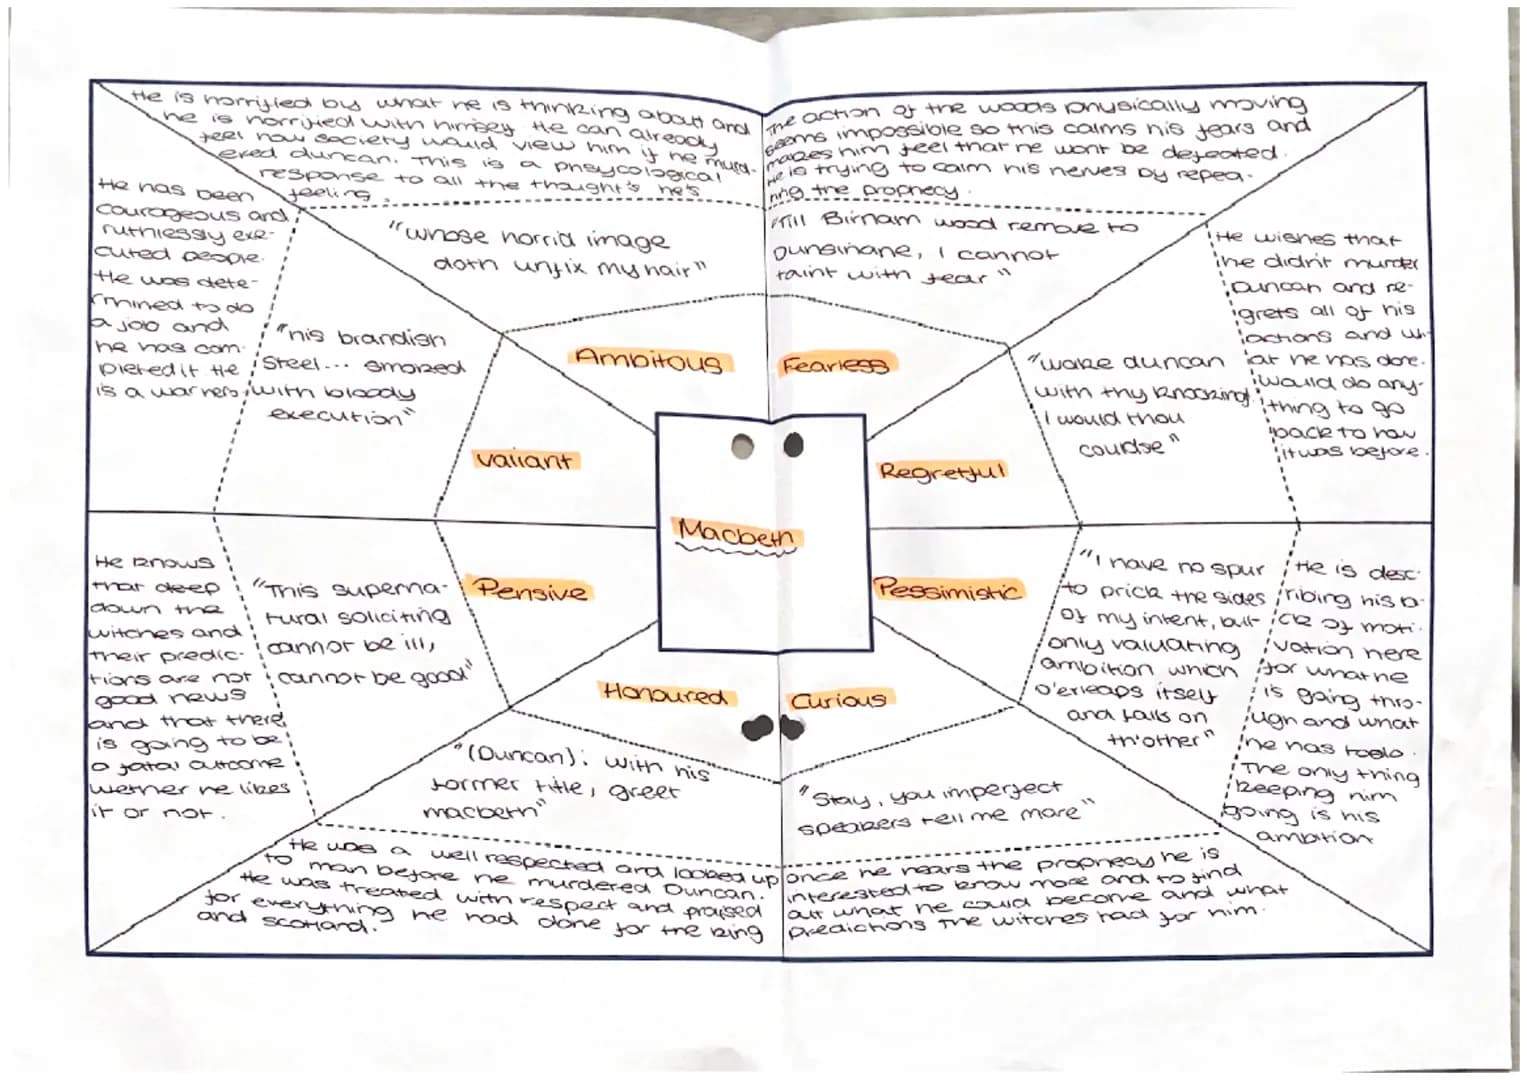 He is horrified by what he is thinking about and
he is horrified with himself. He can already
feel how society would view him if he murd-
ered duncan. This is a phsycological
response to all the thought's he's
feeling.
"whose horrid image
doth unfix my hair"
Ambitous
The action of the woods physically moving
seems impossible so this calms his fears and
makes him feel that he wont be defeated.
He is trying to calm his nerves by repea-
ting the prophecy.
"Till Birnam wood remove to
Dunsinane, I cannot
taint with fear"
Fearless
He has been
courageous and
ruthlessly exe-
cuted people.
He was dete-
rmined to do
a job and
he has com-
pleted it. He
is a war hero
"his brandish
Steel... smoked
with bloody
execution"
Valiant
He wishes that
he didn't murder
Duncan and re-
grets all of his
actions and wh-
at he has done.
Would do any-
thing to go
back to how
it was before.
"wake duncan
with thy knocking!
I would thou
couldse"
Regretful
Macbeth
He knows
that deep
down the
witches and
their predic-
tions are not
good news
and that there
is going to be
a fatal outcome
wether he likes
it or not.
"This superna-
tural soliciting
cannot be ill,
cannot be good"
Pensive
"I have no spur
to prick the sides
of my intent, but
only valuating
ambition which
o'erleaps itself
and falls on
th'other"
He is desc-
ribing his la-
ck of moti-
vation here
for what he
is going thro-
ugh and what
he has todo.
The only thing
keeping him
going is his
ambition
Pessimistic
Honoured
"(Duncan): with his
former title, greet
macbeth"
He was a well respected and looked up
to man before he murdered Duncan.
He was treated with respect and praised
for everything he had done for the king
and scotland.
Curious
"Stay, you imperfect
speakers tell me more"
once he hears the prophecy he is
interested to know more and to find
out what he could become and what
predictions the witches had for him.